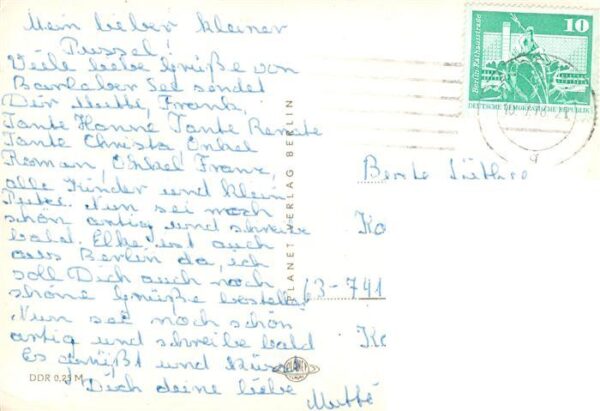 Mein lieber kleiner
Pussel!
Viele liebe Grüße von
Barlaber See sendet
Dir Mutti, Frank,
Tante Hanne Tante Renate
Tante Christa Onkel
Roman, Onkel Franz,
alle Kinder und klein
Pute. Nun sei noch
schön artig und schreibe
bald. Elke ist auch
aus Berlin da, ich
soll Dich auch noch
schöne Grüße bestellen
Nun sei noch schön
artig und schreibe bald
Es grüßt und
Dich deine liebe
Mutti
DDR 0,25 M
PLANET-VERLAG BERLIN
10
Berlin, Rathausstraße
DEUTSCHE DEMOKRATISCHE REPUBLIK
63-741